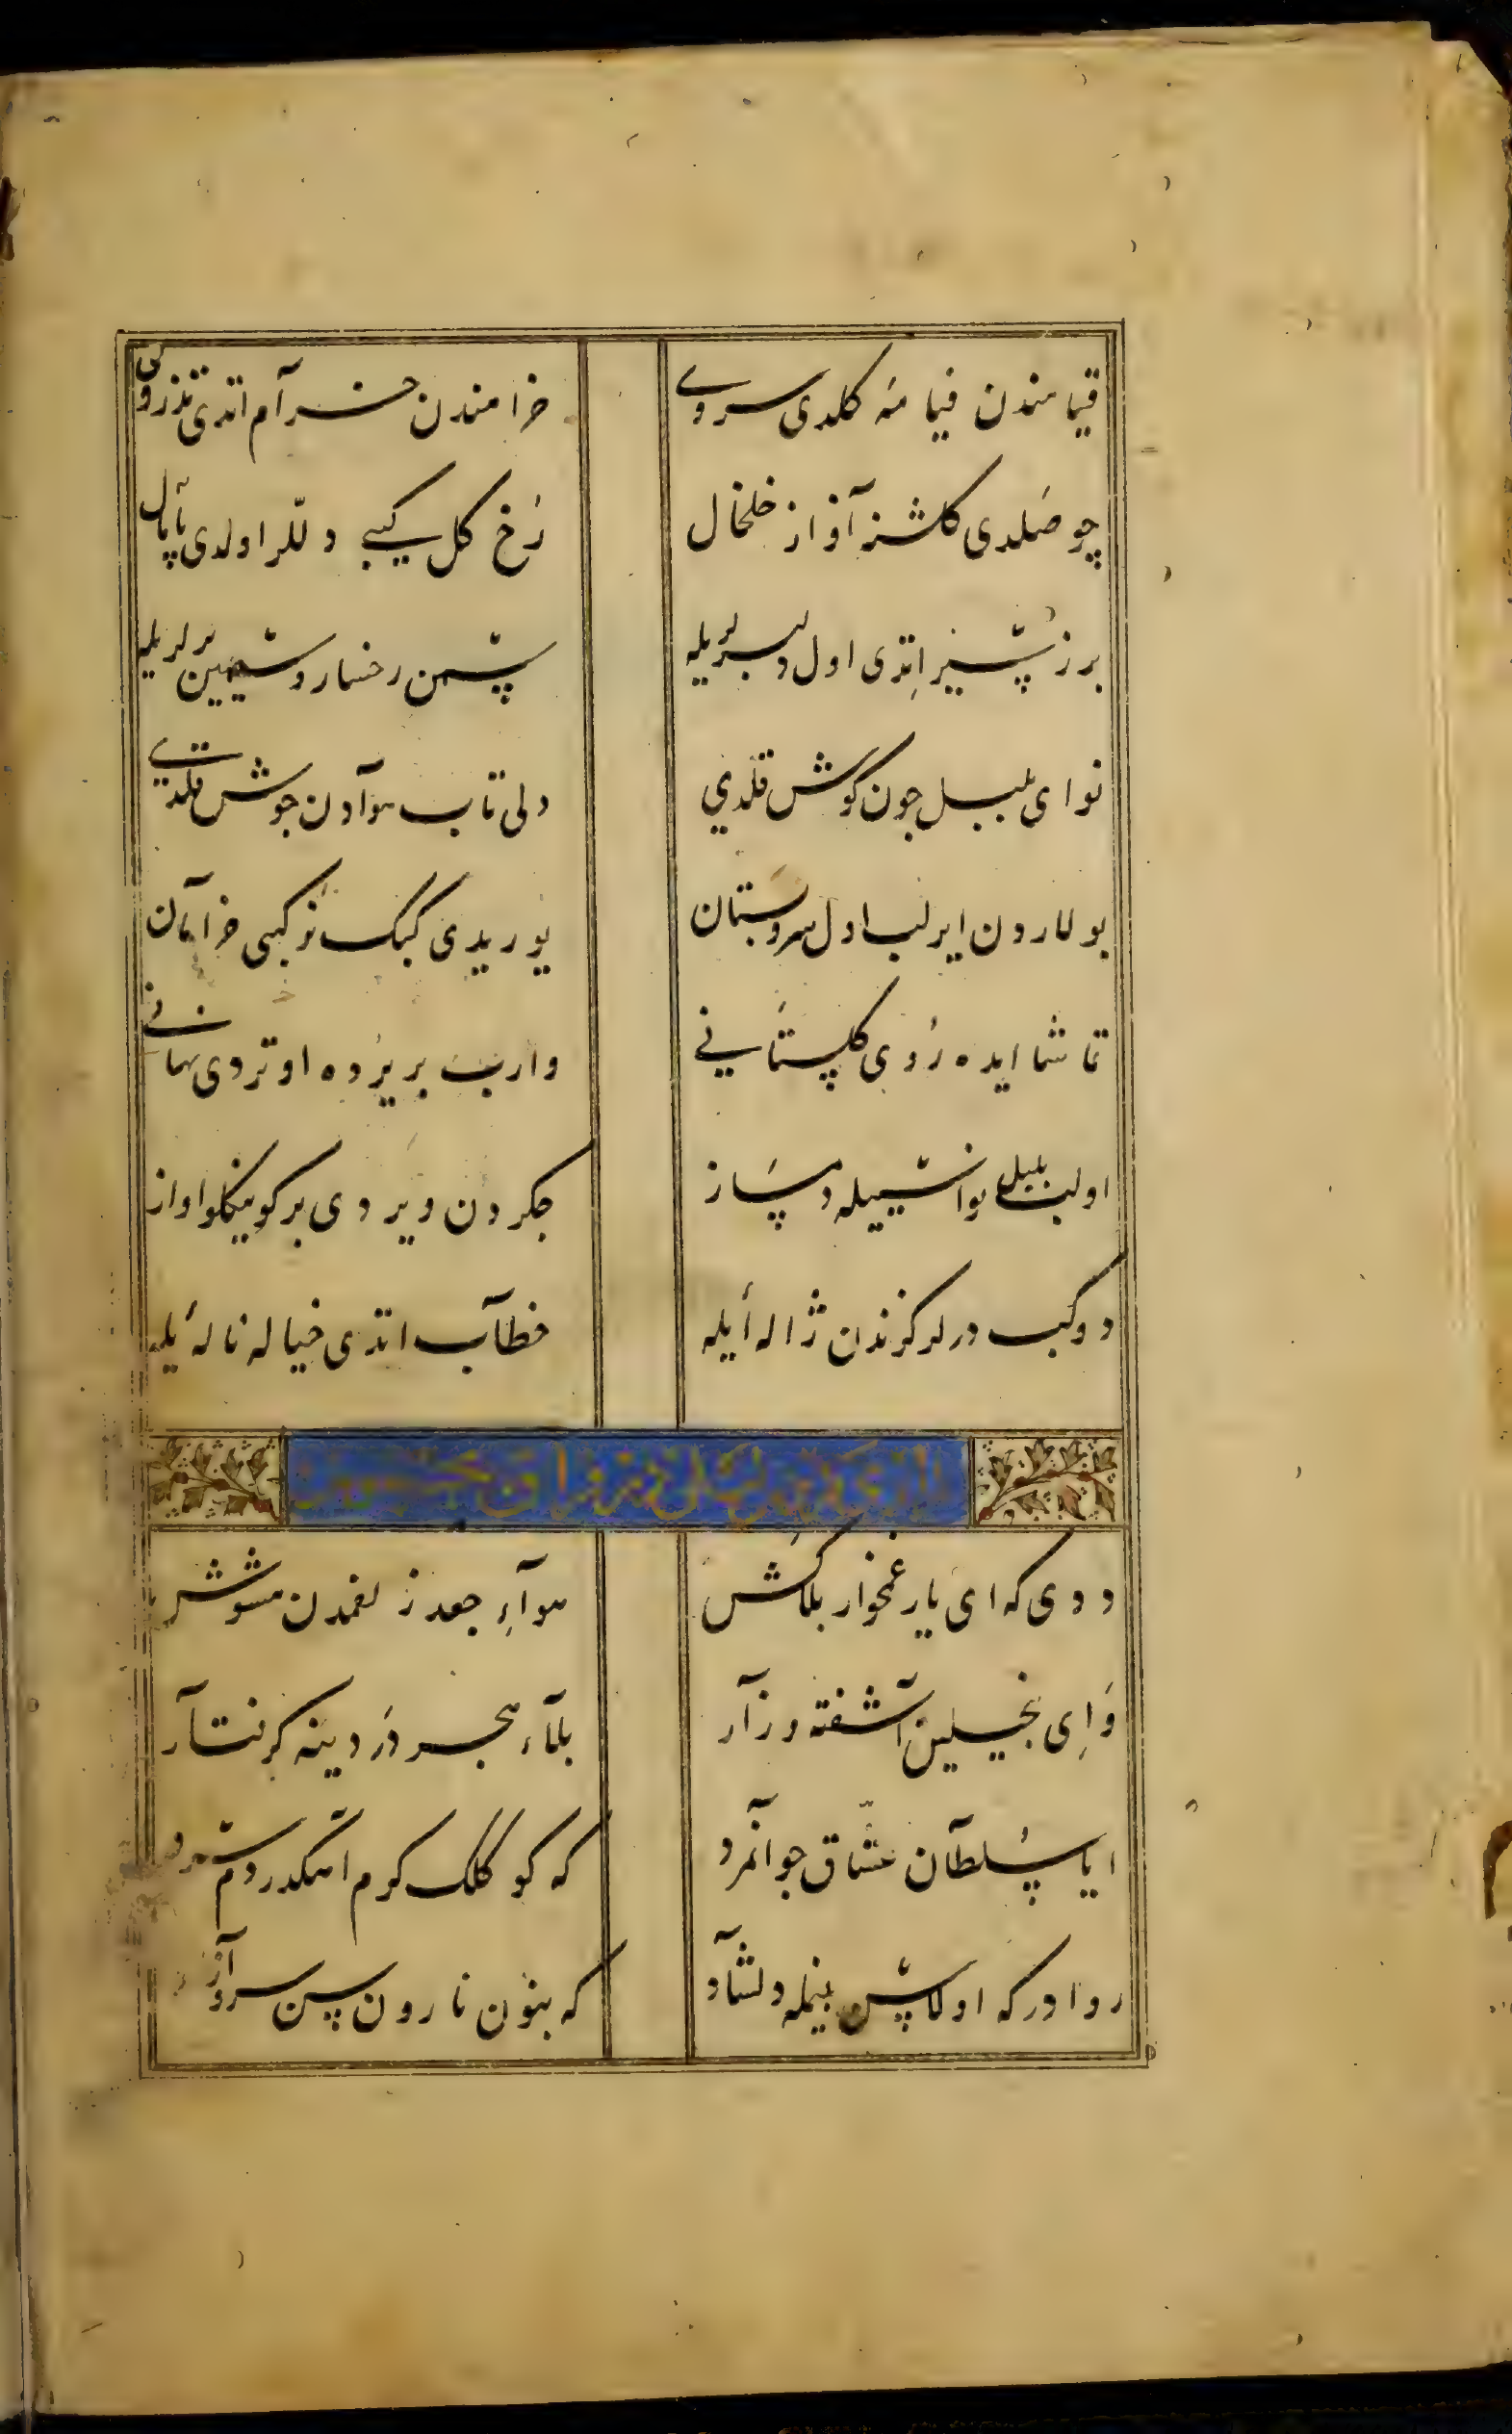 قیامندن قیامه کلدی سروی
خرامندن خرام اتدی تذروی
چو صلدی کلشنه آواز خلخال
رخ کل کبی دللر اولدی پامال
برز سیر اتدی اول دلبرلریله
سمن رخسار و سیمین برلریله
نوای بلبل چون کوش قلدی
دلی تاب هوادن جوش قلدی
بولاردن ایرلب اول سروستان
یوریدی کبک نر کبی خرامان
تماشا ایده روی کلستانی
وارب بر یرده اوتردی نهانی
اولب بلبل نواسیله دمساز
جکردن ویردی بر کوینکلو اواز
دوکب درلر کوزندن ژاله ایله
خطاب اتدی خیاله ناله ایله
ددی که ای یار غمخوار بلاکش
هوآء جعد زلفمدن مشوش
وای بخیلین آشفته و زار
بلآء هجر دردینه کرفتار
ایا سلطان عشاق جوانمرد
که کوکلک کرم اهکدر دمک سرد
روا در که اولاسن بنمله دلشاد
که بنون نارون سن سرو آزاد